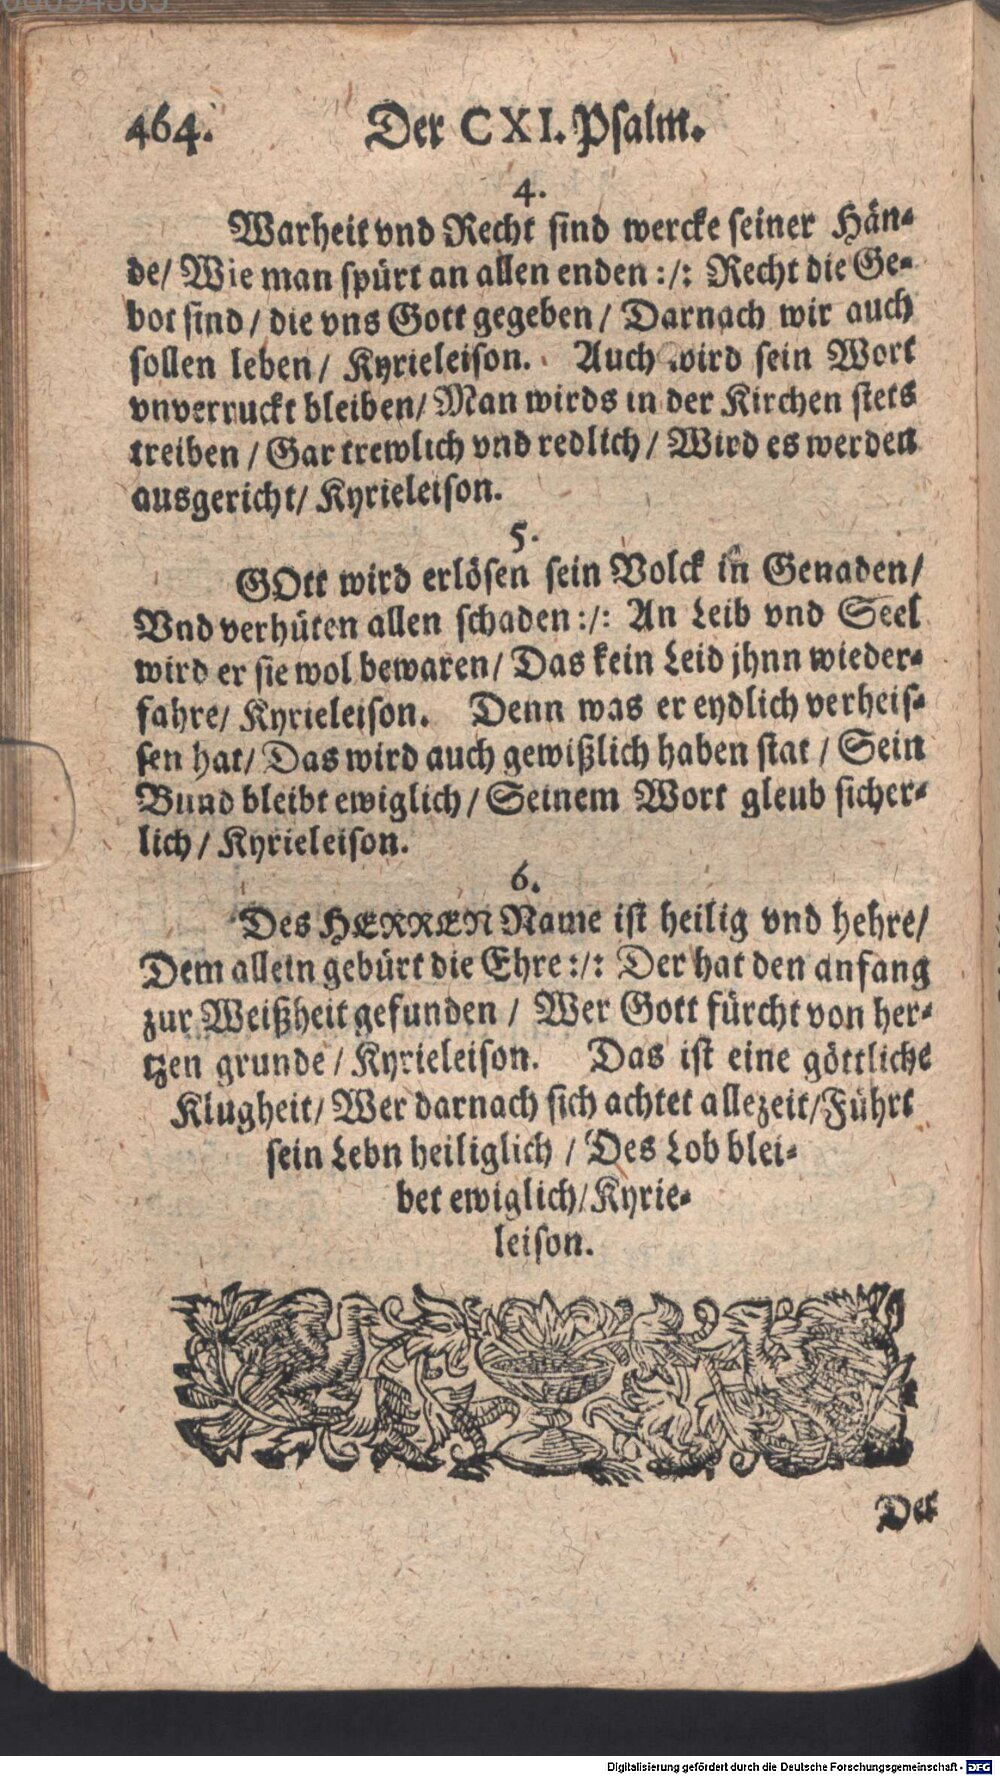 464. Der CXI. Psalm.
4.
Warheit vnd Recht sind wercke seiner Hän-
de/ Wie man spürt an allen enden :/: Recht die Ge-
bot sind / die vns Gott gegeben / Darnach wir auch
sollen leben / Kyrieleison. Auch wird sein Wort
vnverruckt bleiben/ Man wirds in der Kirchen stets
treiben / Gar trewlich vnd redlich / Wird es werden
ausgericht/ Kyrieleison.
5.
GOtt wird erlösen sein Volck in Genaden/
Vnd verhüten allen schaden :/: An Leib vnd Seel
wird er sie wol bewaren/ Das kein Leid jhnn wieder-
fahre/ Kyrieleison. Denn was er eydlich verheis-
sen hat/ Das wird auch gewißlich haben stat / Sein
Bund bleibt ewiglich / Seinem Wort gleub sicher-
lich / Kyrieleison.
6.
Des HERREN Name ist heilig vnd hehre/
Dem allein gebürt die Ehre :/: Der hat den anfang
zur Weißheit gefunden / Wer Gott fürcht von her-
tzen grunde / Kyrieleison. Das ist eine göttliche
Klugheit/ Wer darnach sich achtet allezeit/Führt
sein Lebn heiliglich / Des Lob blei-
bet ewiglich/Kyrie-
leison.
Der
Digitalisierung gefördert durch die Deutsche Forschungsgemeinschaft - DFG